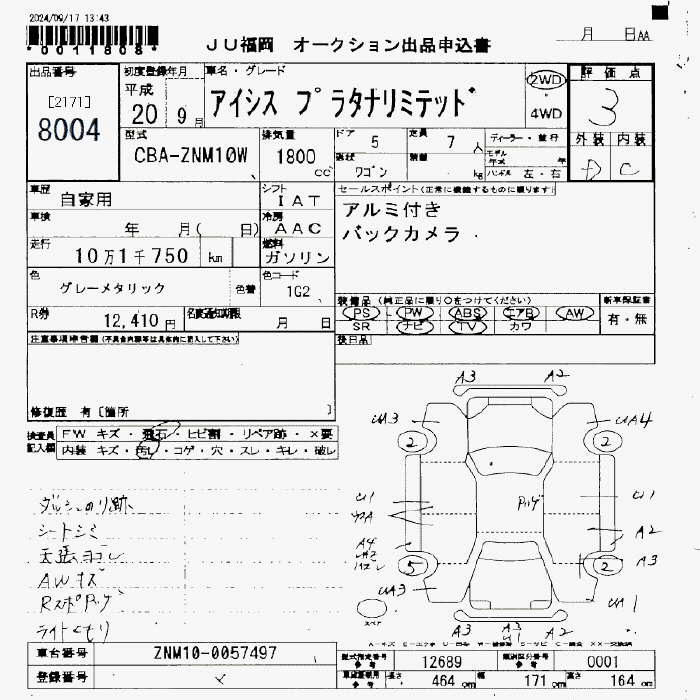 2024/09/17 13:43
*0011808*
JU福岡 オークション出品申込書
月 日 AA
出品番号
[2171]
8004
初度登録年月
平成
20 9月
車名・グレード
アイシス プラタナリミテッド
2WD
4WD
評価点
3
外装 内装
D C
型式
CBA-ZNM10W
排気量
1800
cc
ドア 5
定員 7 人
形状
ワゴン
積載 kg
ディーラー・並行
モデル年式 年
ハンドル 左・右
車歴
自家用
シフト
IAT
車検
年 月( 日)
冷房
AAC
走行
10万1千750 km
燃料
ガソリン
色
グレーメタリック
色替
色コード
1G2
R券
12,410 円
名変通知期限
月 日
セールスポイント(正常に機能するものに限ります)
アルミ付き
バックカメラ
装備品(純正品に限り○をつけてください)
新車保証書
PS PW ABS エアB AW
SR ナビ TV カワ
有・無
後日品
注意事項申告欄(不具合内容等は具体的に記入して下さい)
修復歴 有[箇所 ]
検査員
記入欄
FW キズ・飛石・ヒビ割・リペア跡・×要
内装 キズ・汚れ・コゲ・穴・スレ・キレ・破レ
ダッシュのり跡
シートシミ
天張ヨゴレ
AWキズ
RスポPカゲ
ライトくもり
A3 A2
UA3 UA4
2 2
U1
A4
U1
A2
A3
5 2
UA3 U1
スペア
A3 A3 A2
車台番号
ZNM10-0057497
登録番号
型式指定番号
参考
12689
類別区分番号
参考
0001
長さ
464 cm
幅
171 cm
高さ
164 cm